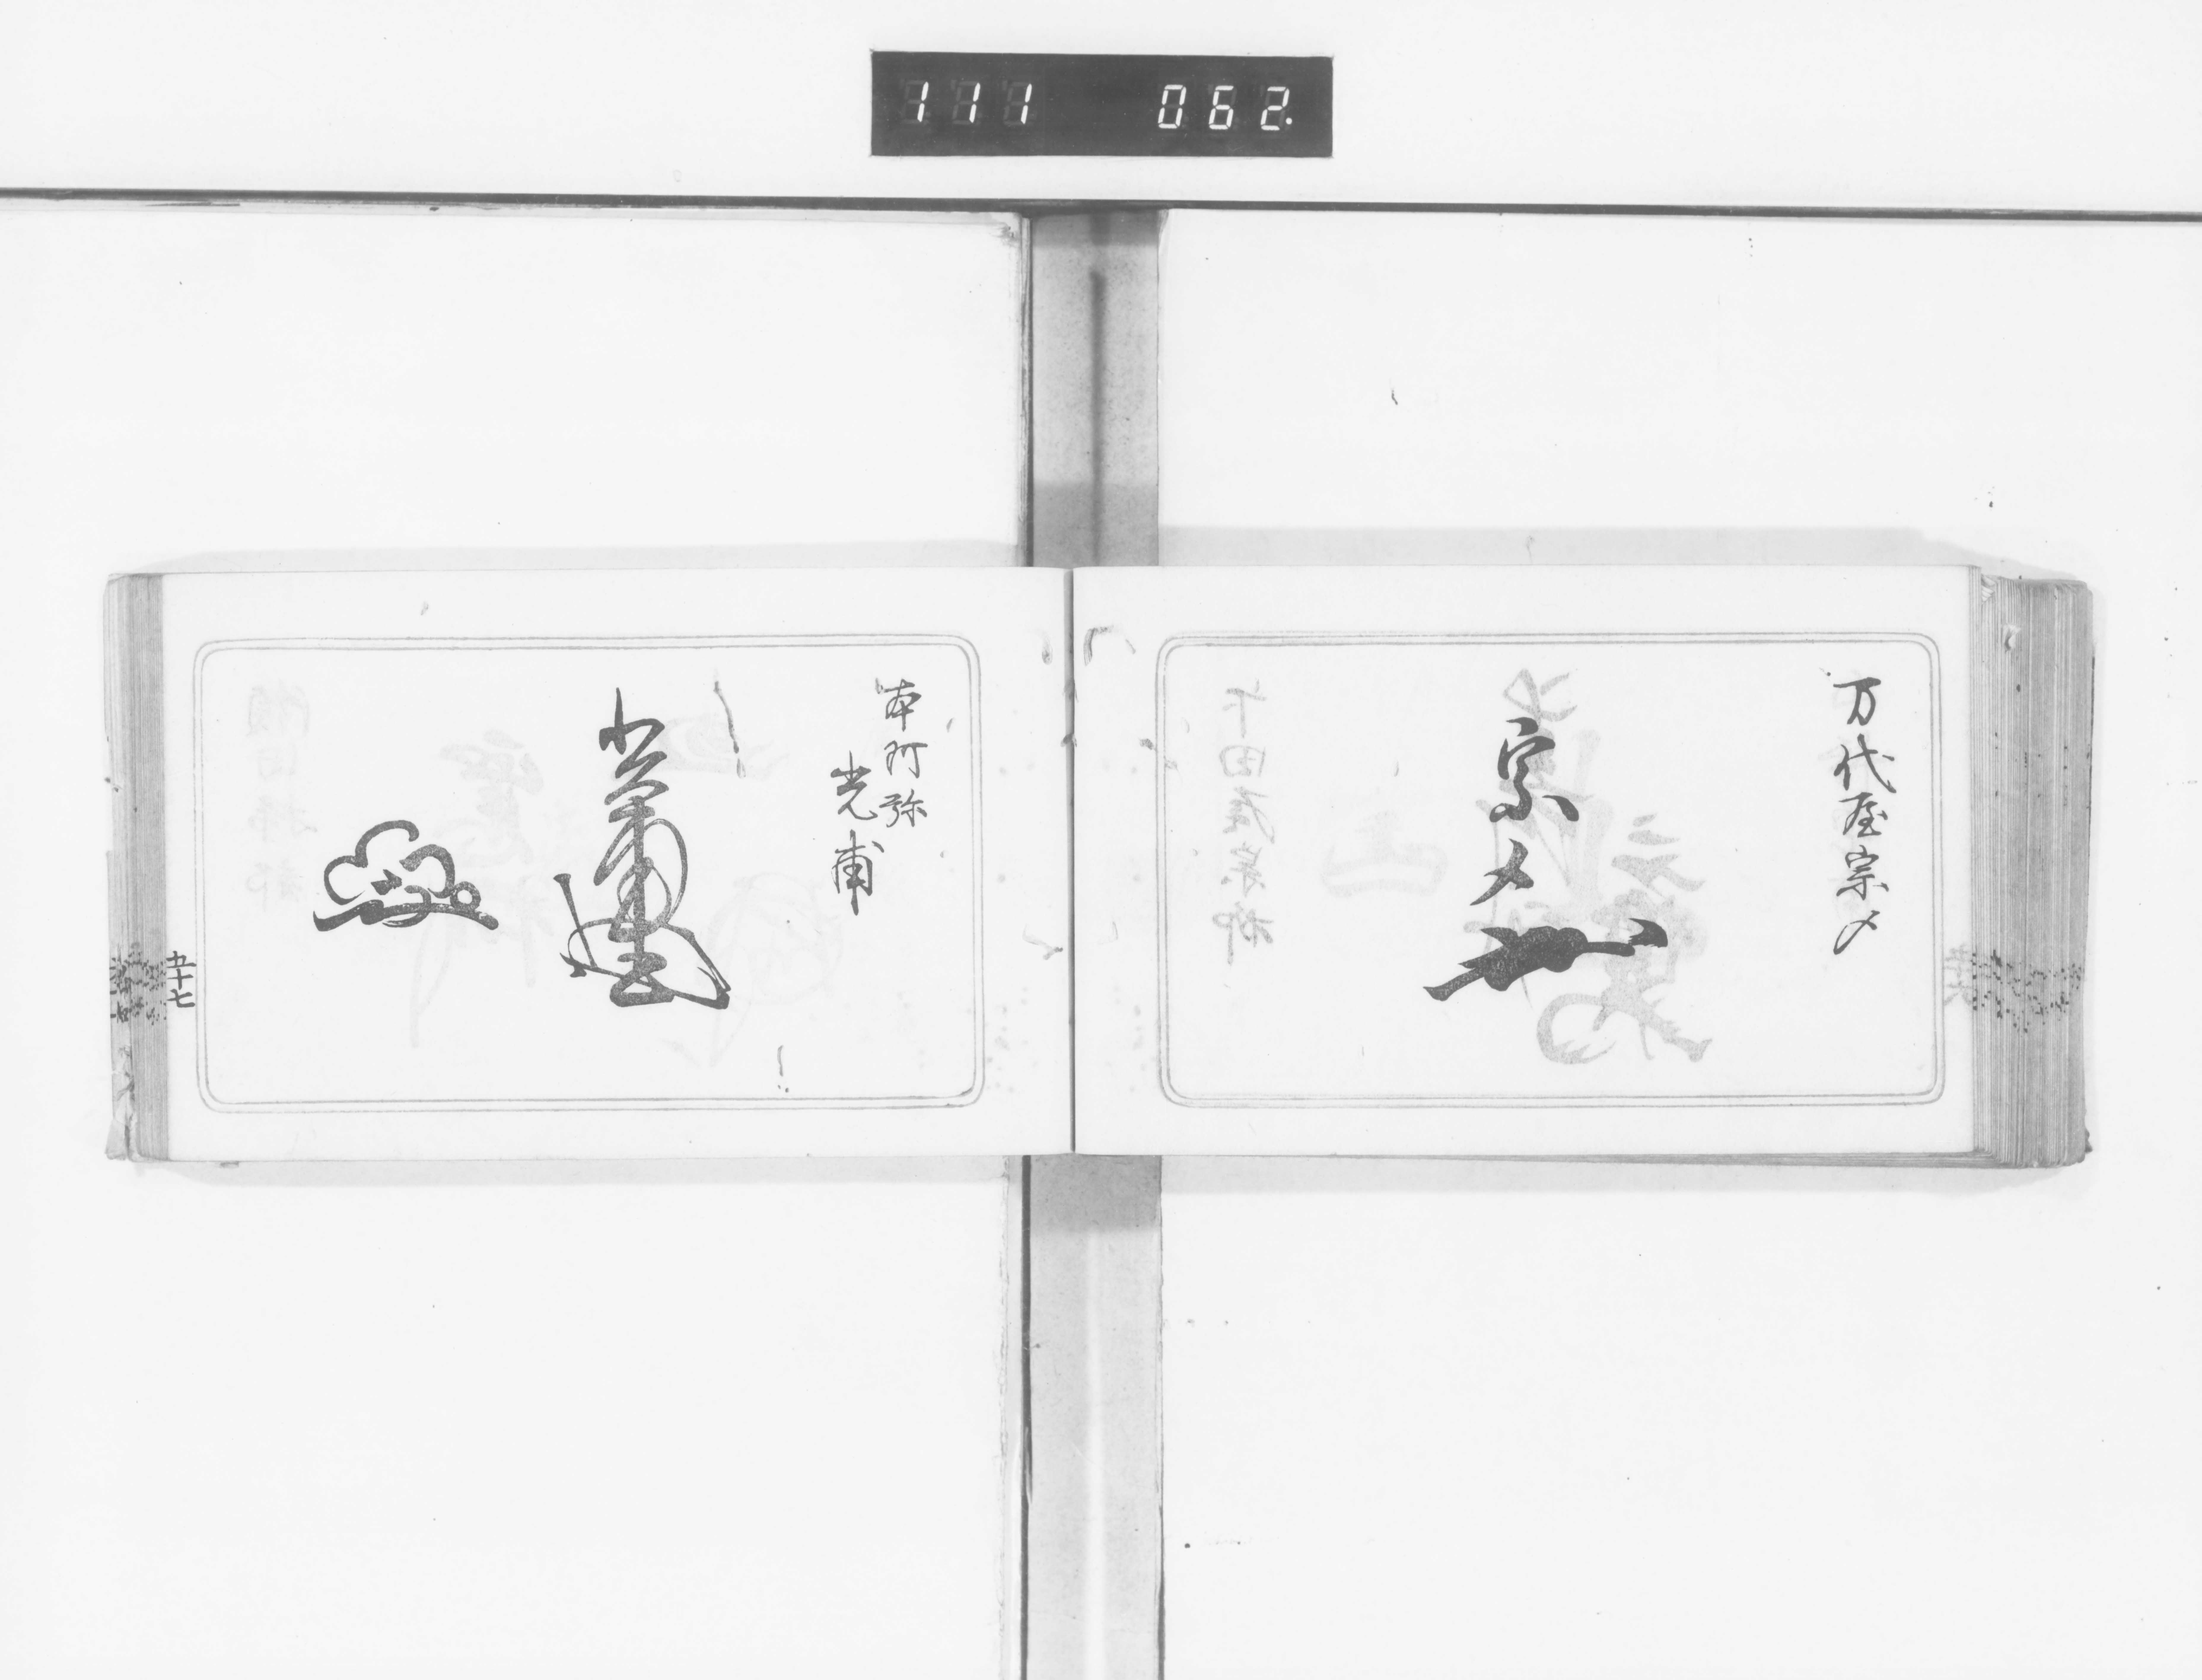 111 062.
万代屋宗〆
宗〆
本阿弥
光甫
光甫
五十七